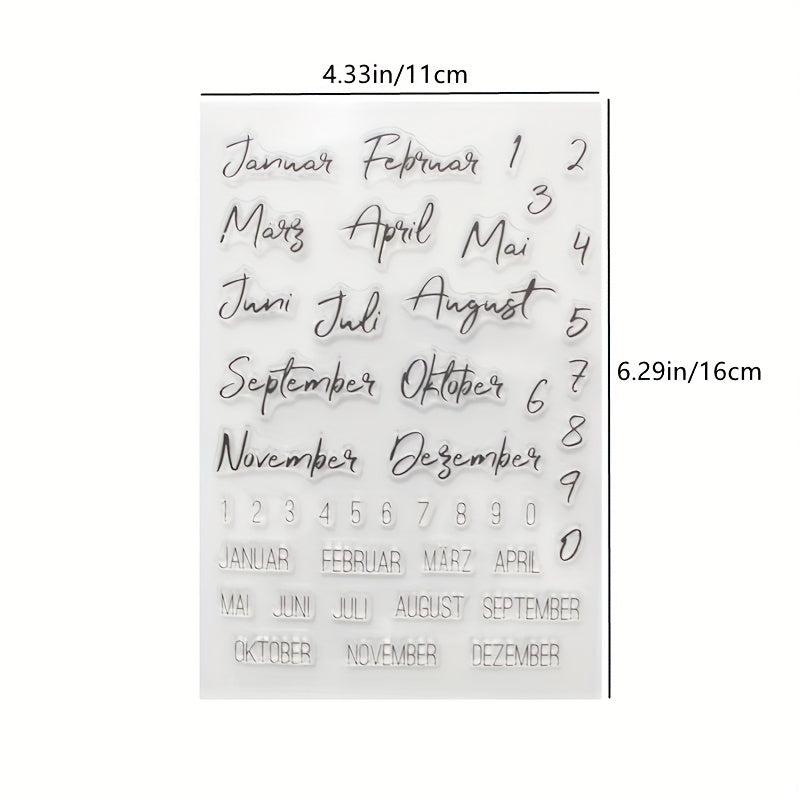 4.33in/11cm
Januar Februar 1 2
3
März April Mai 4
Juni Juli August 5
6.29in/16cm
September Oktober 6 7
8
November Dezember 9
1 2 3 4 5 6 7 8 9 0
0
JANUAR FEBRUAR MÄRZ APRIL
MAI JUNI JULI AUGUST SEPTEMBER
OKTOBER NOVEMBER DEZEMBER